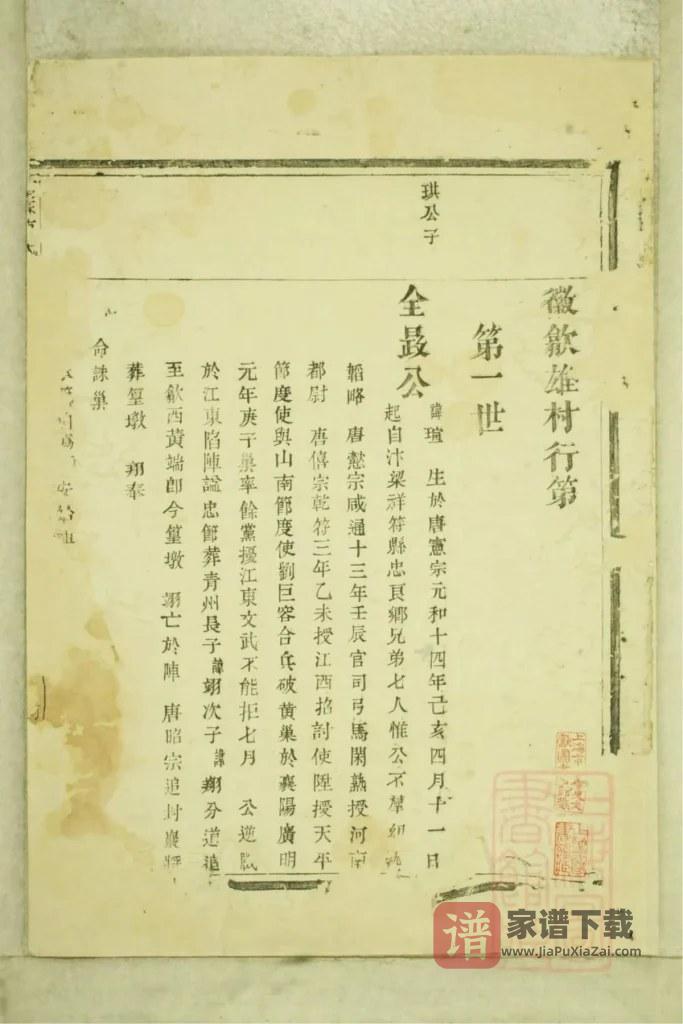 徽歙雄村行第
第一世
珙公子
全晸公
諱瑄 生於唐憲宗元和十四年己亥四月十一日
起自汴梁祥符縣忠良鄉兄弟七人惟公不羣
韜略 唐懿宗咸通十三年壬辰官司弓馬閑熟授河南
都尉 唐僖宗乾符三年乙未授江西招討使陞授天平
節度使與山南節度使劉巨容合兵破黃巢於襄陽廣明
元年庚子巢率餘黨擾江東文武不能拒七月 公逆
於江東陷陣謚忠節葬青州長子諱翊次子諱翔分道追
至歙西黃端卽今篁墩 翊亡於陣 唐昭宗追封
葬篁墩 翔奉
命誅巢
谱 家谱下载
www.JiaPuXiaZai.com